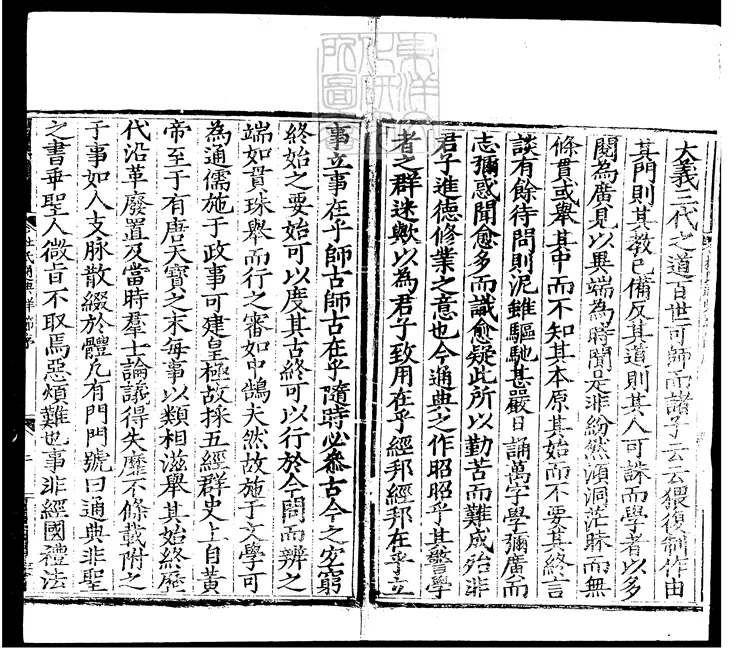 大義三代之道百世可師而諸子云云猥復制作由
其門則其教已備反其道則其人可誅而學者以多
閱為廣見以異端為時聞是非紛然澒洞茫昧而無
條貫或舉其中而不知其本原其始而不要其終言
談有餘待問則泥雖驅馳甚嚴日誦萬字學彌廣而
志彌惑聞愈多而識愈疑此所以勤苦而難成殆非
君子進德修業之意也今通典之作昭昭乎其警學
者之群迷歟以為君子致用在乎經邦經邦在乎立
事立事在乎師古師古在乎隨時必叅古今之宜窮
終始之要始可以度其古終可以行於今問而辨之
端如貫珠舉而行之審如中鵠夫然故施于文學可
為通儒施于政事可建皇極故採五經群史上自黃
帝至于有唐天寶之末每事以類相滋舉其始終歷
代沿革廢置及當時羣士論議得失靡不條載附之
于事如人支脉散綴於體凡有門門號曰通典非聖
之書乖聖人微旨不取焉惡煩難也事非經國禮法